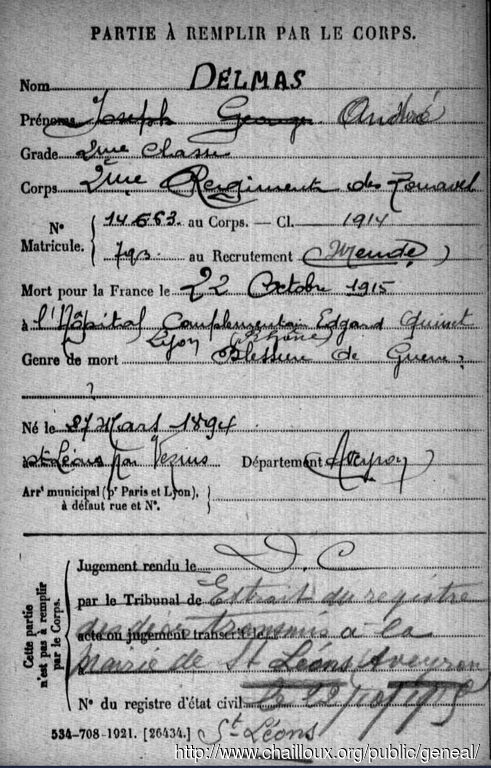 PARTIE À REMPLIR PAR LE CORPS.
Nom DELMAS
Prénoms Joseph Georges André
Grade 2me Classe
Corps 2me Régiment des Zouaves
N° Matricule. 14653 au Corps. — Cl. 1914
793 au Recrutement Mende
Mort pour la France le 22 Octobre 1915
à l'Hôpital Complémentaire Edgard Quinet
Lyon (Rhône)
Genre de mort Blessure de Guerre
?
Né le 27 Mars 1894
à St Léons par Vezins Département Aveyron
Arrt municipal (pr Paris et Lyon), à défaut rue et N°.
Cette partie n'est pas à remplir par le Corps.
Jugement rendu le D. C
par le Tribunal de Extrait du registre
acte ou jugement transcrit le des décès transmis à la
à mairie de St Léons Aveyron
N° du registre d'état civil
534-708-1921. [26434.] St Léons
http://www.chailloux.org/public/geneal/